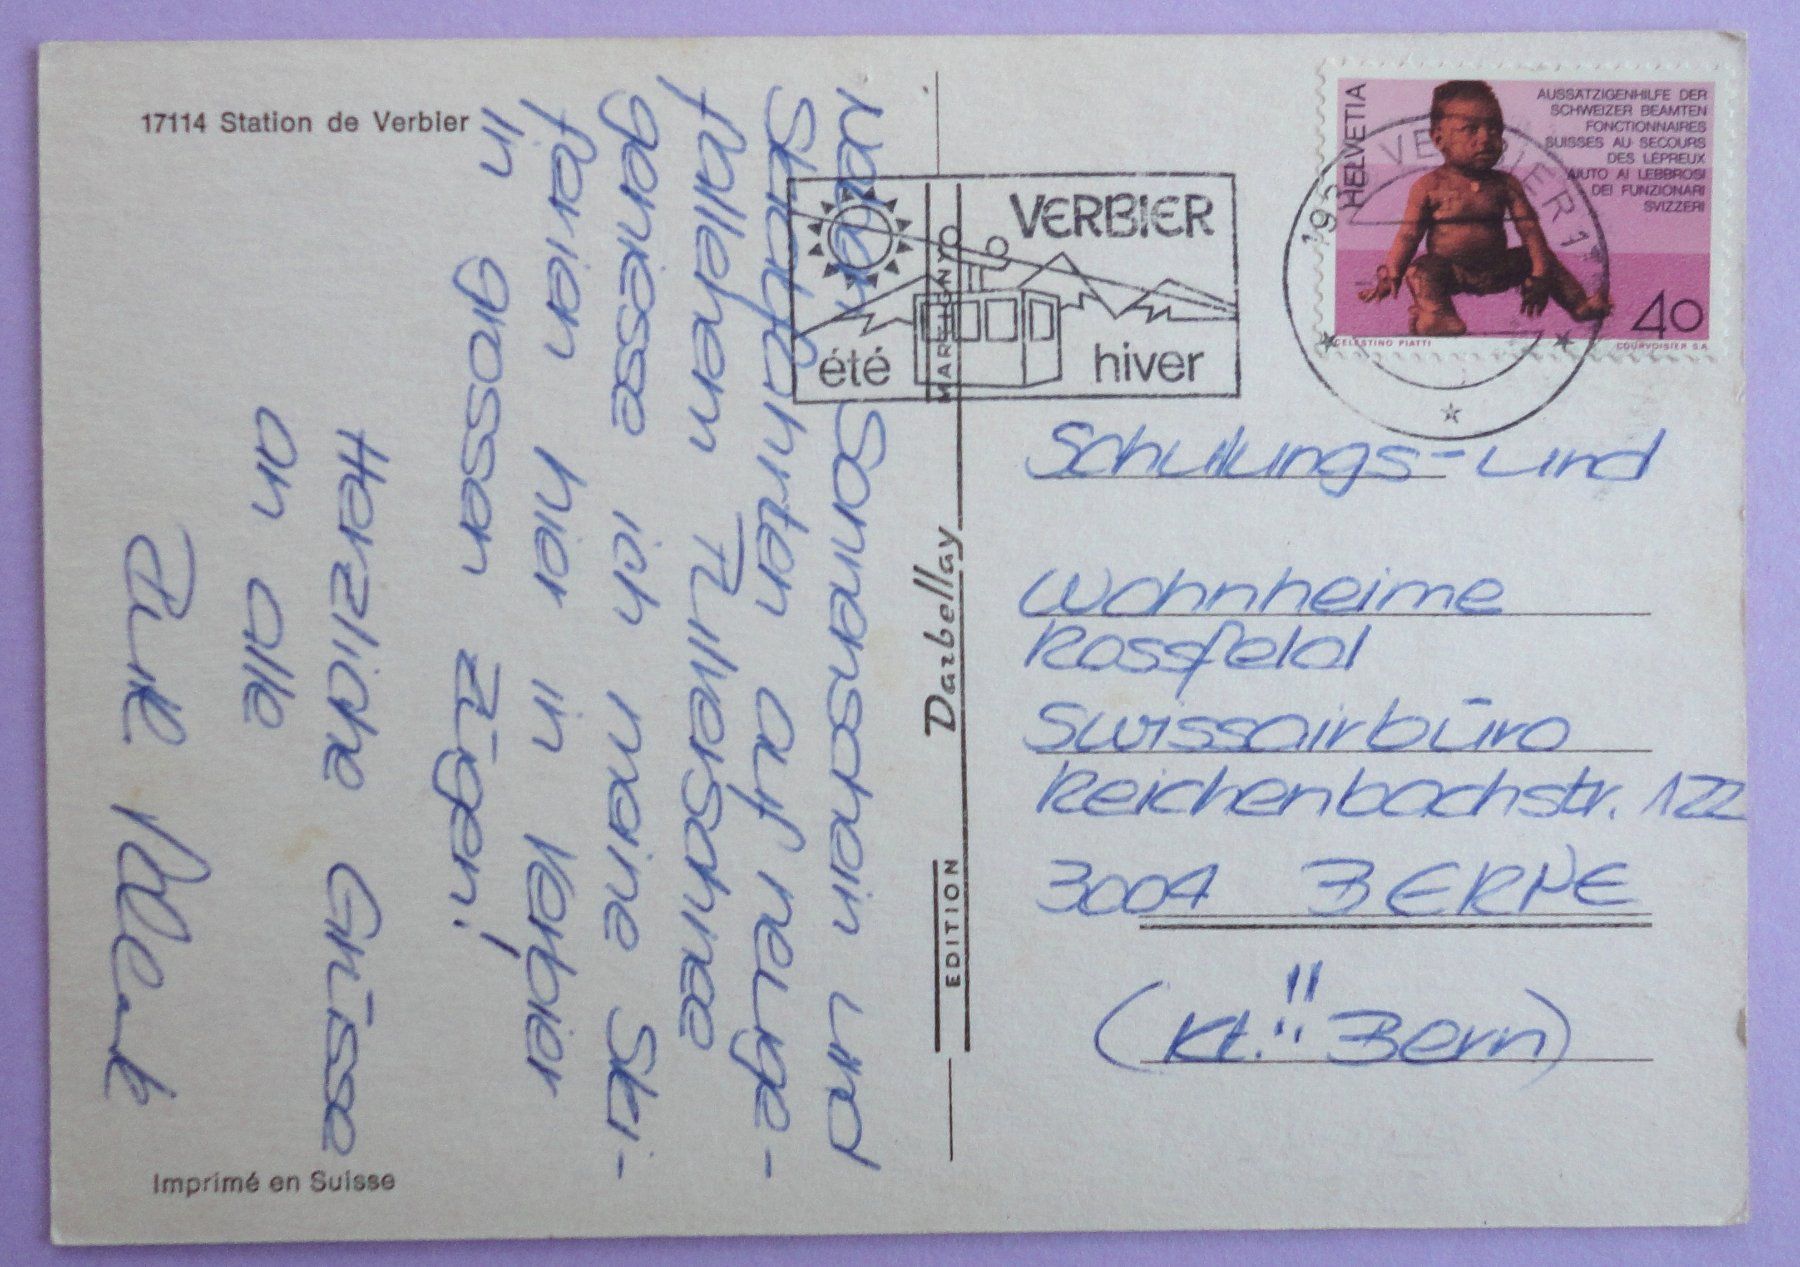 17114 Station de Verbier
Neben Sonnenschein und
Skiabfahrten auf neuge-
fallenem Pulverschnee
geniesse ich meine Ski-
ferien hier in Verbier
in grossen Zügen!
Herzliche Grüsse
an alle
Imprimé en Suisse
MARTIGNY
Darbellay
EDITION
VERBIER
été
hiver
1935 VERBIER 1
HELVETIA
AUSSÄTZIGENHILFE DER
SCHWEIZER BEAMTEN
FONCTIONNAIRES
SUISSES AU SECOURS
DES LÉPREUX
AIUTO AI LEBBROSI
DEI FUNZIONARI
SVIZZERI
40
CELESTINO PIATTI
COURVOISIER S.A.
Schulungs- und
Wohnheime
Rossfeld
Swissairbüro
Reichenbachstr. 122
3004 BERNE
(Kt.!! Bern)